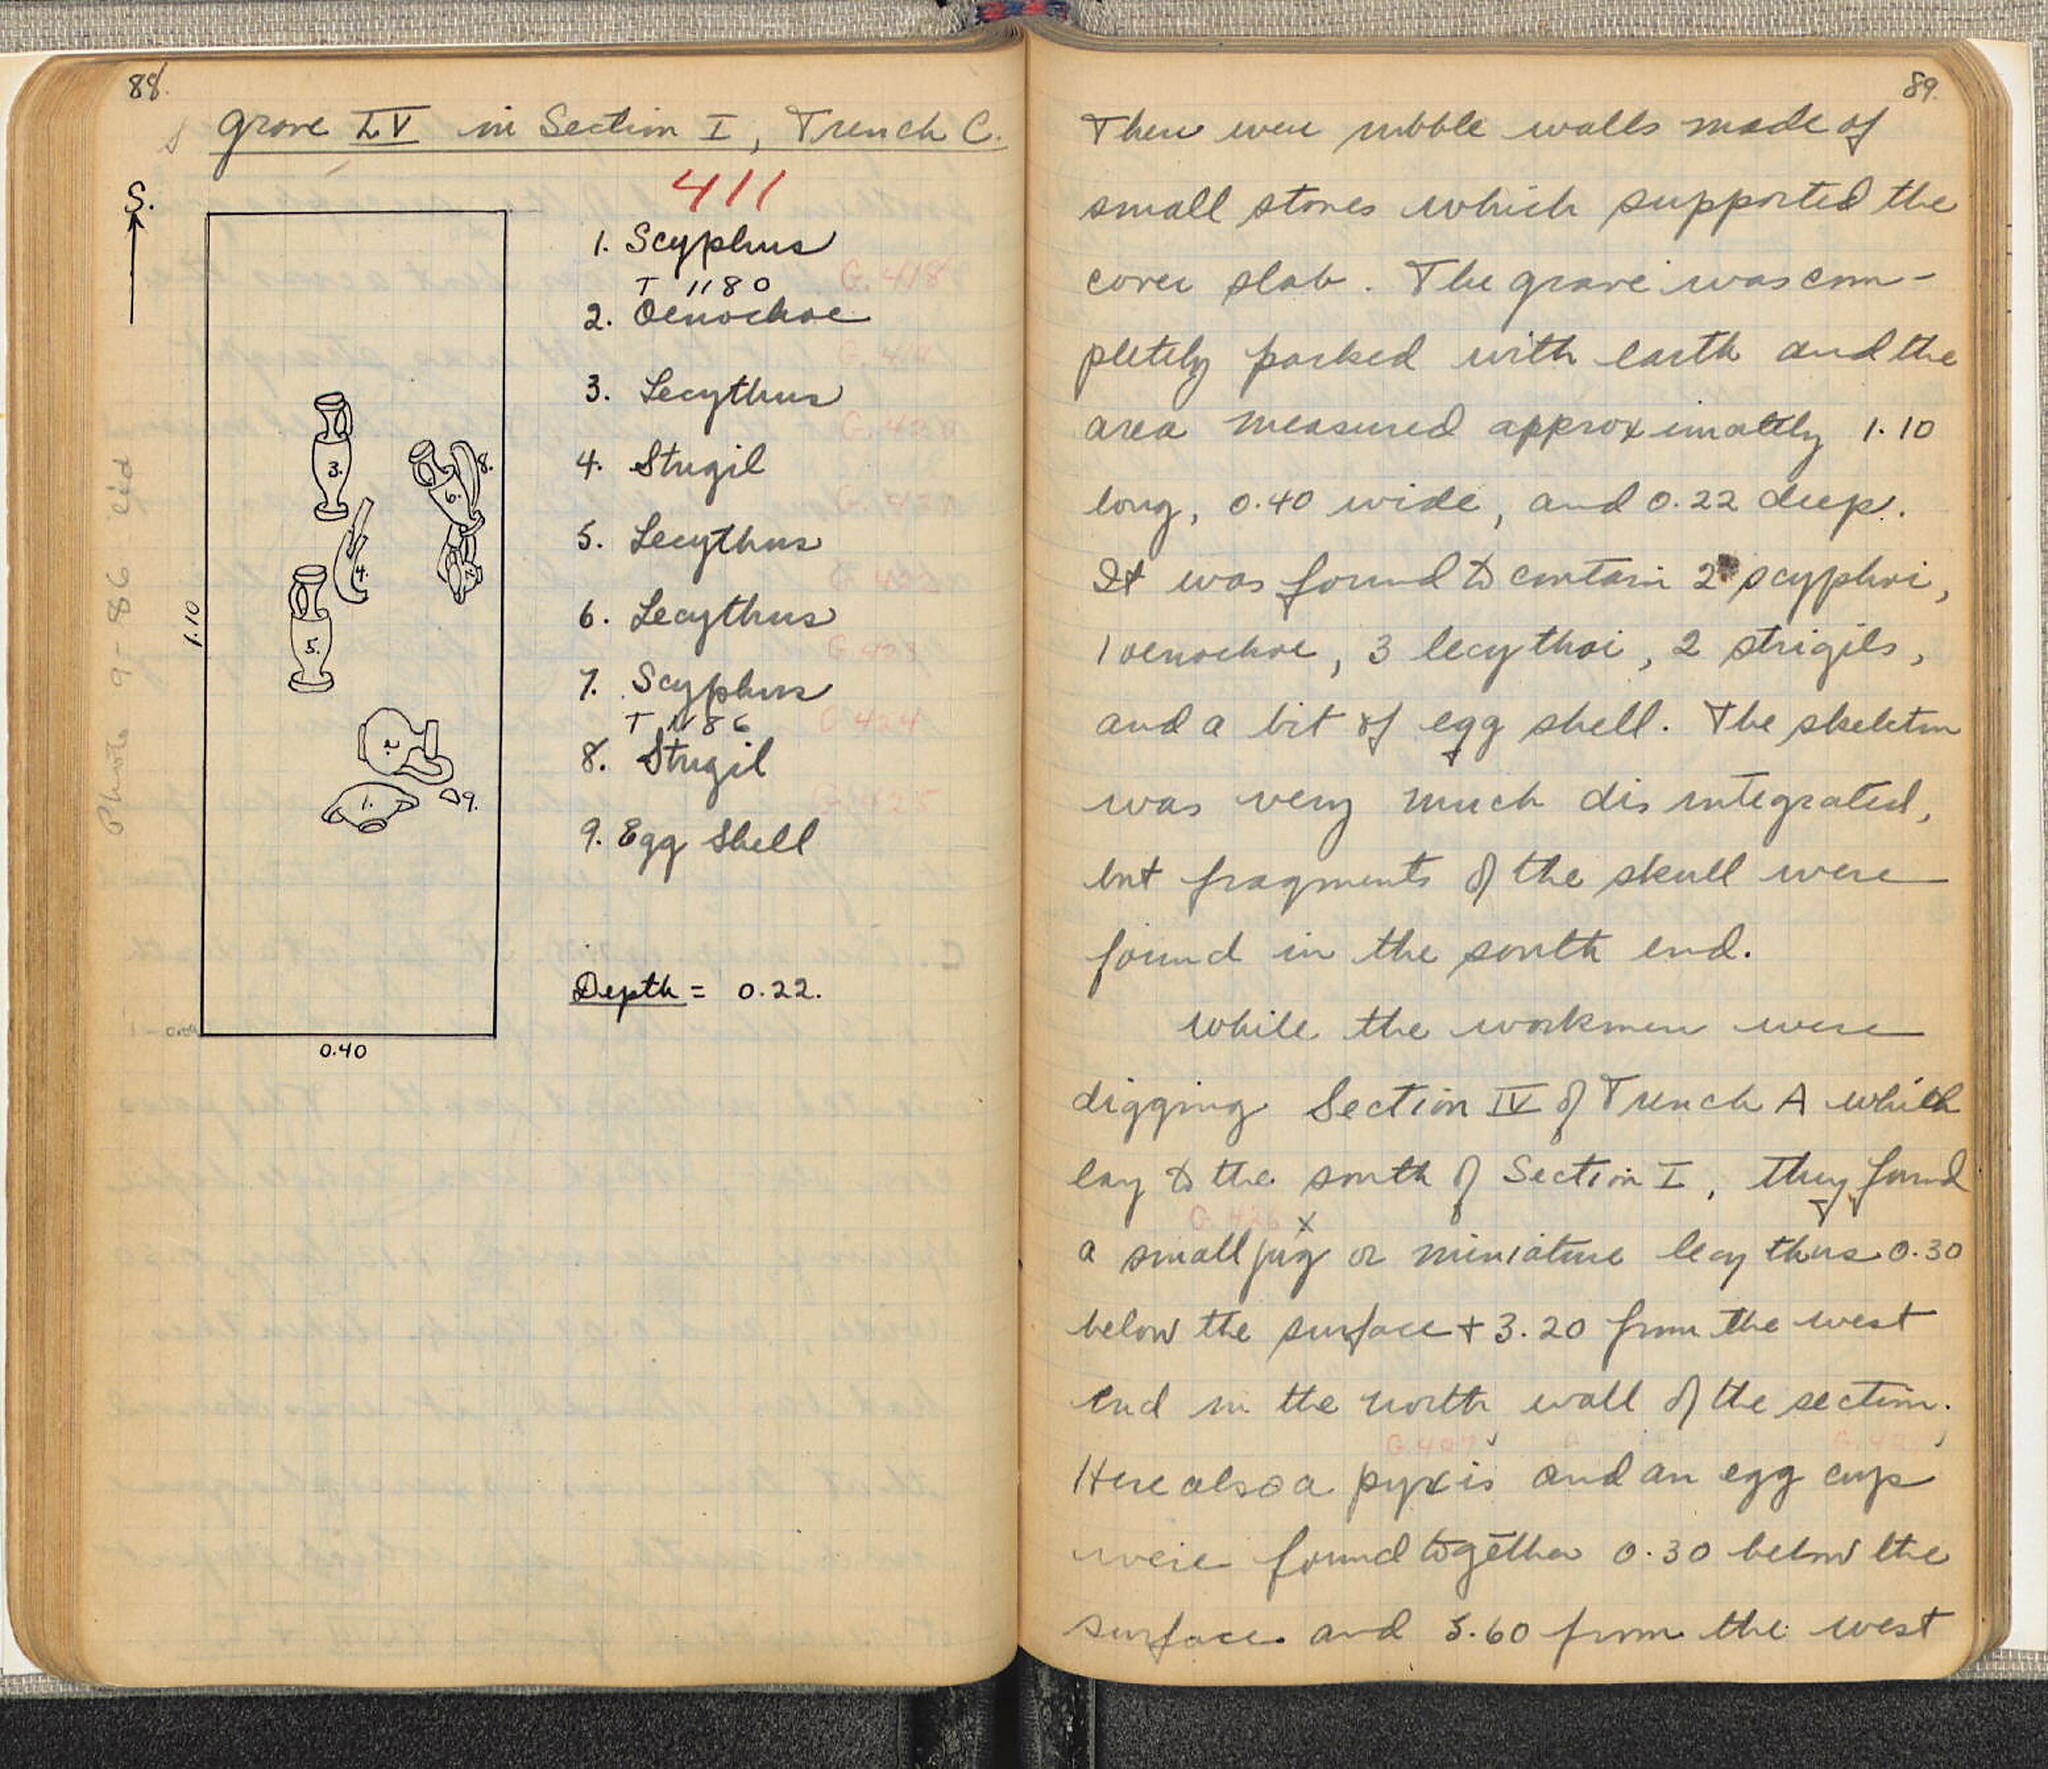 88.
Grave LV in Section I, Trench C.
411
S.
1. Scyphus
T 1180
2. Oenochoe
3. Lecythus
4. Strigil
5. Lecythus
6. Lecythus
7. Scyphus
T 1186
8. Strigil
9. Egg Shell
Depth = 0.22.
3.
8.
6.
4.
5.
2.
1.
9.
1.10
0.40
Photo 9-86
G. 418
G. 423
G 424
G. 425
89.
There were rubble walls made of
small stones which supported the
cover slab. The grave was com-
pletely packed with earth and the
area measured approximately 1.10
long, 0.40 wide, and 0.22 deep.
It was found to contain 2 scyphoi,
1 oenochoe, 3 lecythoi, 2 strigils,
and a bit of egg shell. The skeleton
was very much disintegrated,
but fragments of the skull were
found in the south end.
While the workmen were
digging Section IV of Trench A which
lay to the south of Section I, they found
G. 426 x
a small jug or miniature lecythus 0.30
below the surface + 3.20 from the west
end in the north wall of the section.
G. 407
Here also a pyxis and an egg cup
were found together 0.30 below the
surface and 3.60 from the west